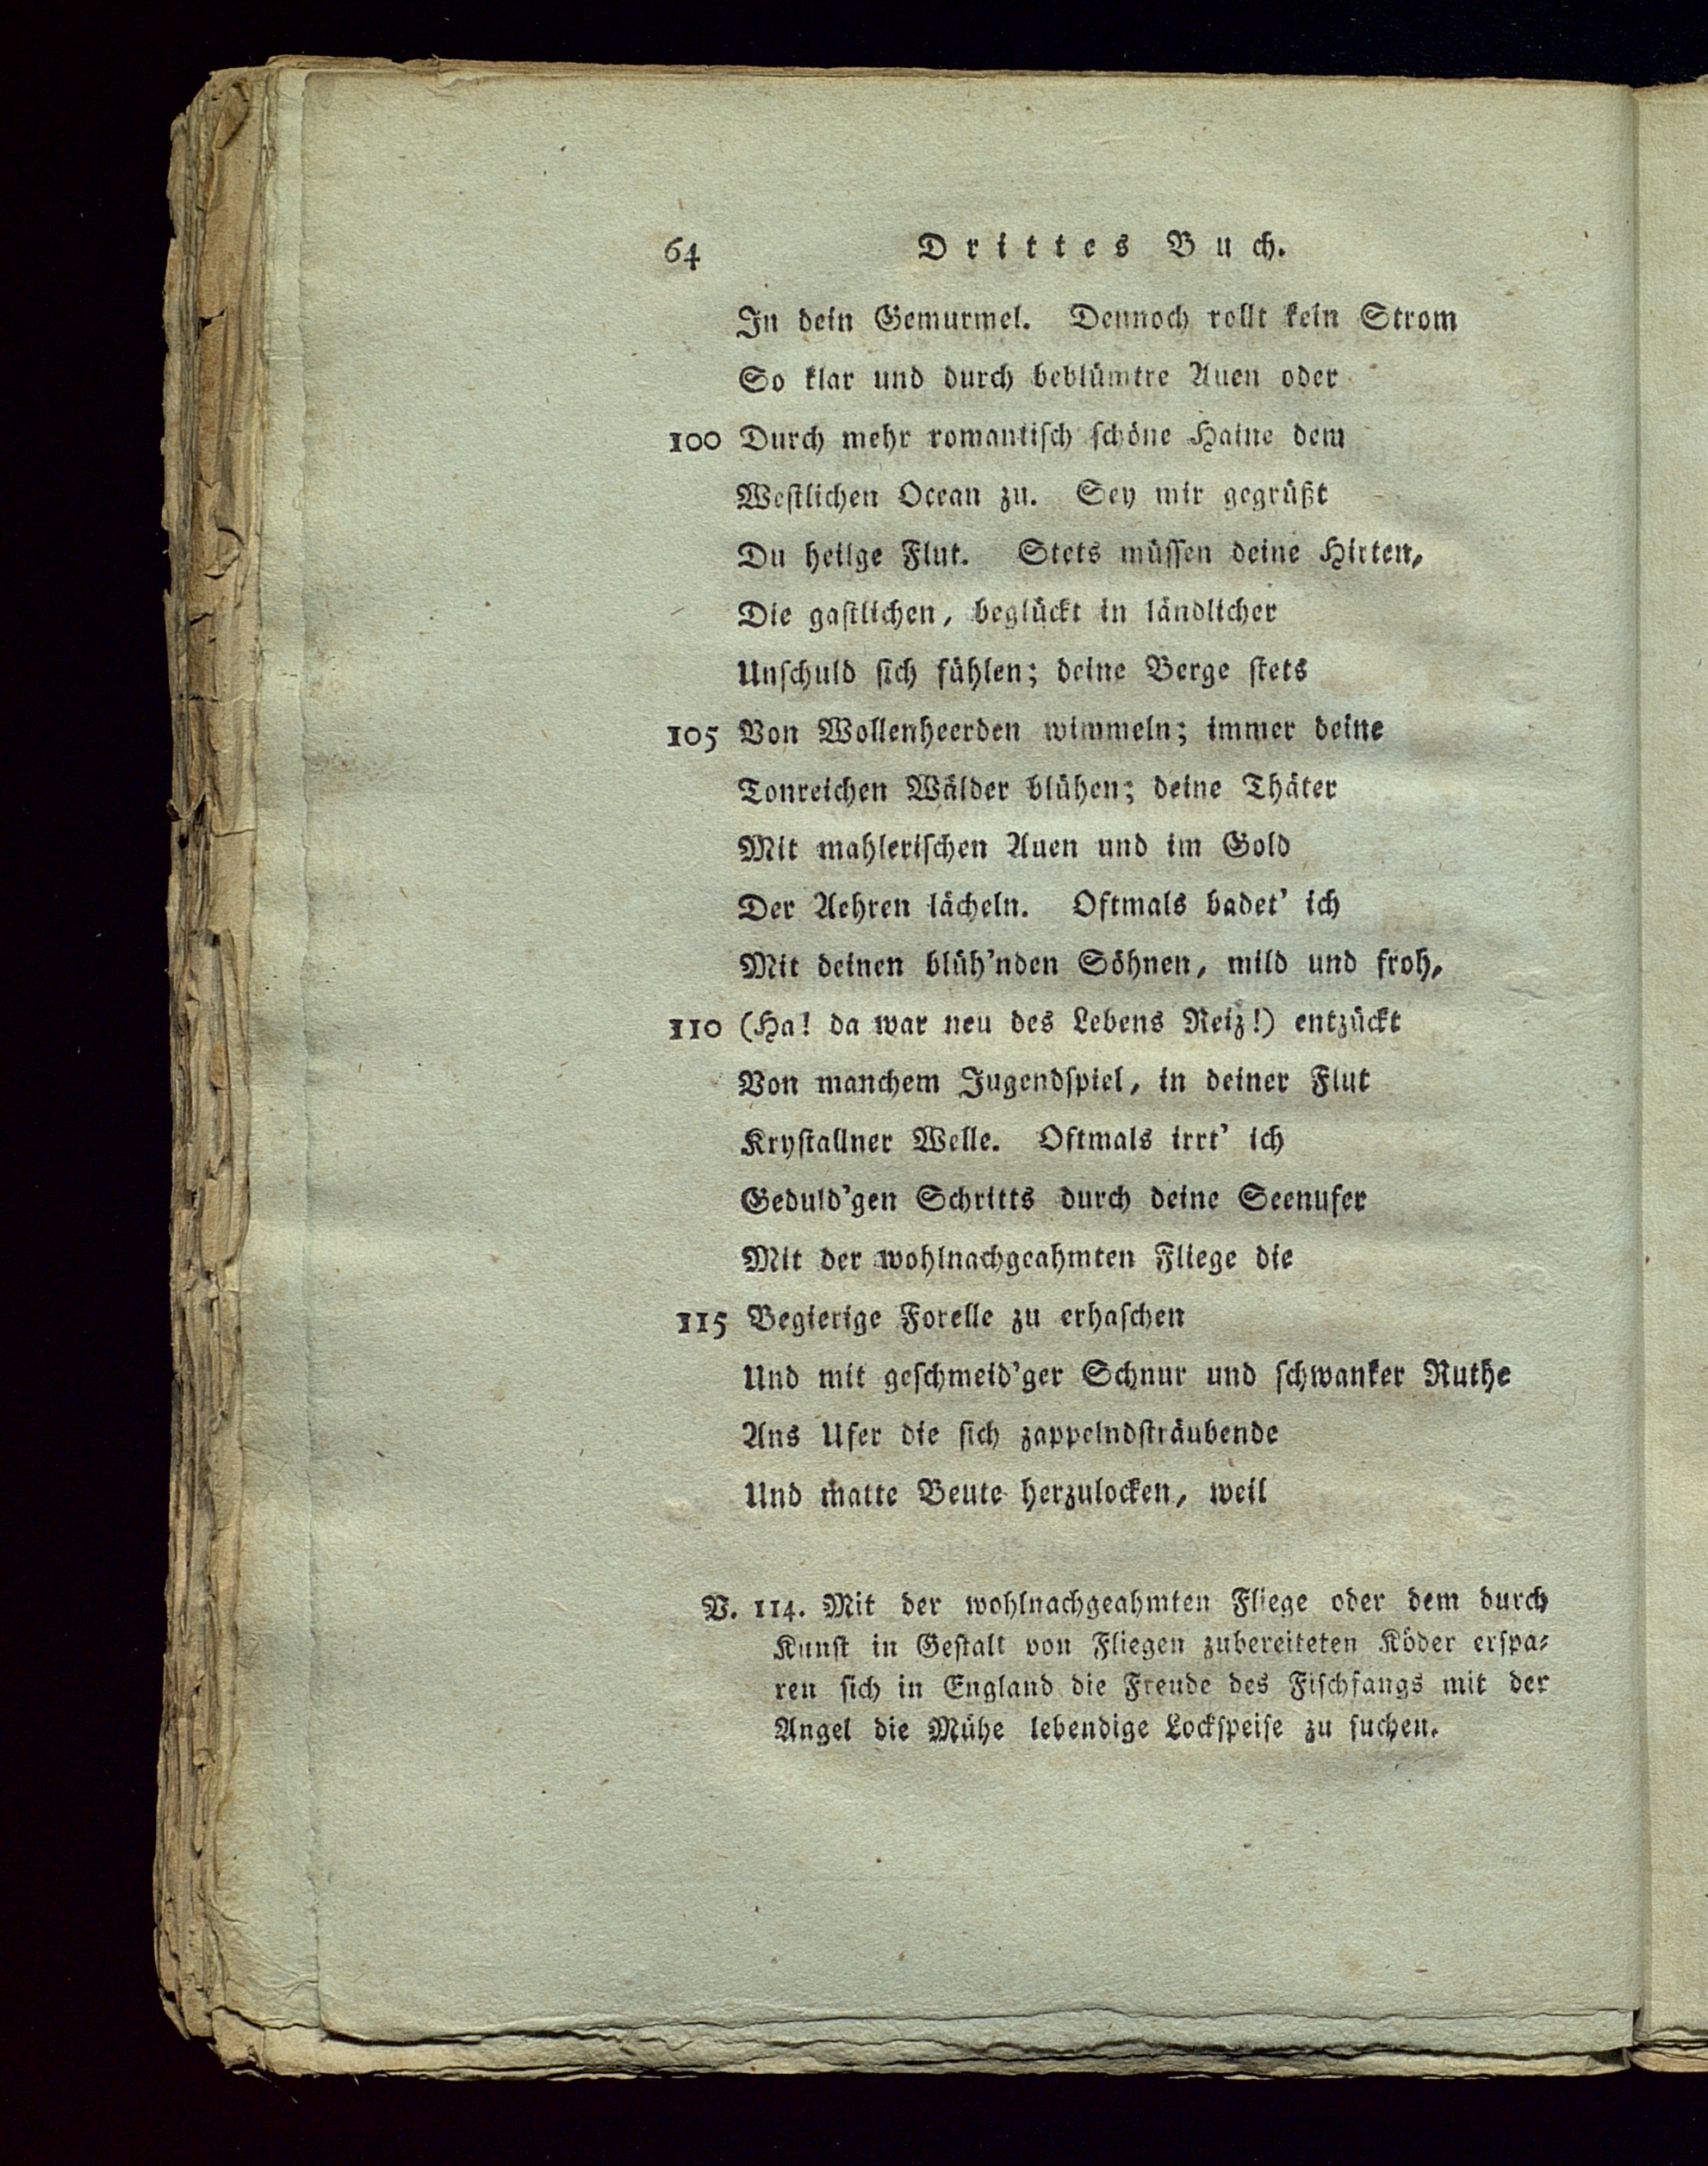 64 Drittes Buch.
In dein Gemurmel. Dennoch rollt kein Strom
So klar und durch beblümtre Auen oder
100 Durch mehr romantisch schöne Haine dem
Westlichen Ocean zu. Sey mir gegrüßt
Du heilge Flut. Stets müssen deine Hirten,
Die gastlichen, beglückt in ländlicher
Unschuld sich fühlen; deine Berge stets
105 Von Wollenheerden wimmeln; immer deine
Tonreichen Wälder blühen; deine Thäter
Mit mahlerischen Auen und im Gold
Der Aehren lächeln. Oftmals badet' ich
Mit deinen blüh'nden Söhnen, mild und froh,
110 (Ha! da war neu des Lebens Reiz!) entzückt
Von manchem Jugendspiel, in deiner Flut
Krystallner Welle. Oftmals irrt' ich
Geduld'gen Schritts durch deine Seenufer
Mit der wohlnachgeahmten Fliege die
115 Begierige Forelle zu erhaschen
Und mit geschmeid'ger Schnur und schwanker Ruthe
Ans Ufer die sich zappelndsträubende
Und matte Beute herzulocken, weil
V. 114. Mit der wohlnachgeahmten Fliege oder dem durch
Kunst in Gestalt von Fliegen zubereiteten Köder erspa-
ren sich in England die Freude des Fischfangs mit der
Angel die Mühe lebendige Lockspeise zu suchen.